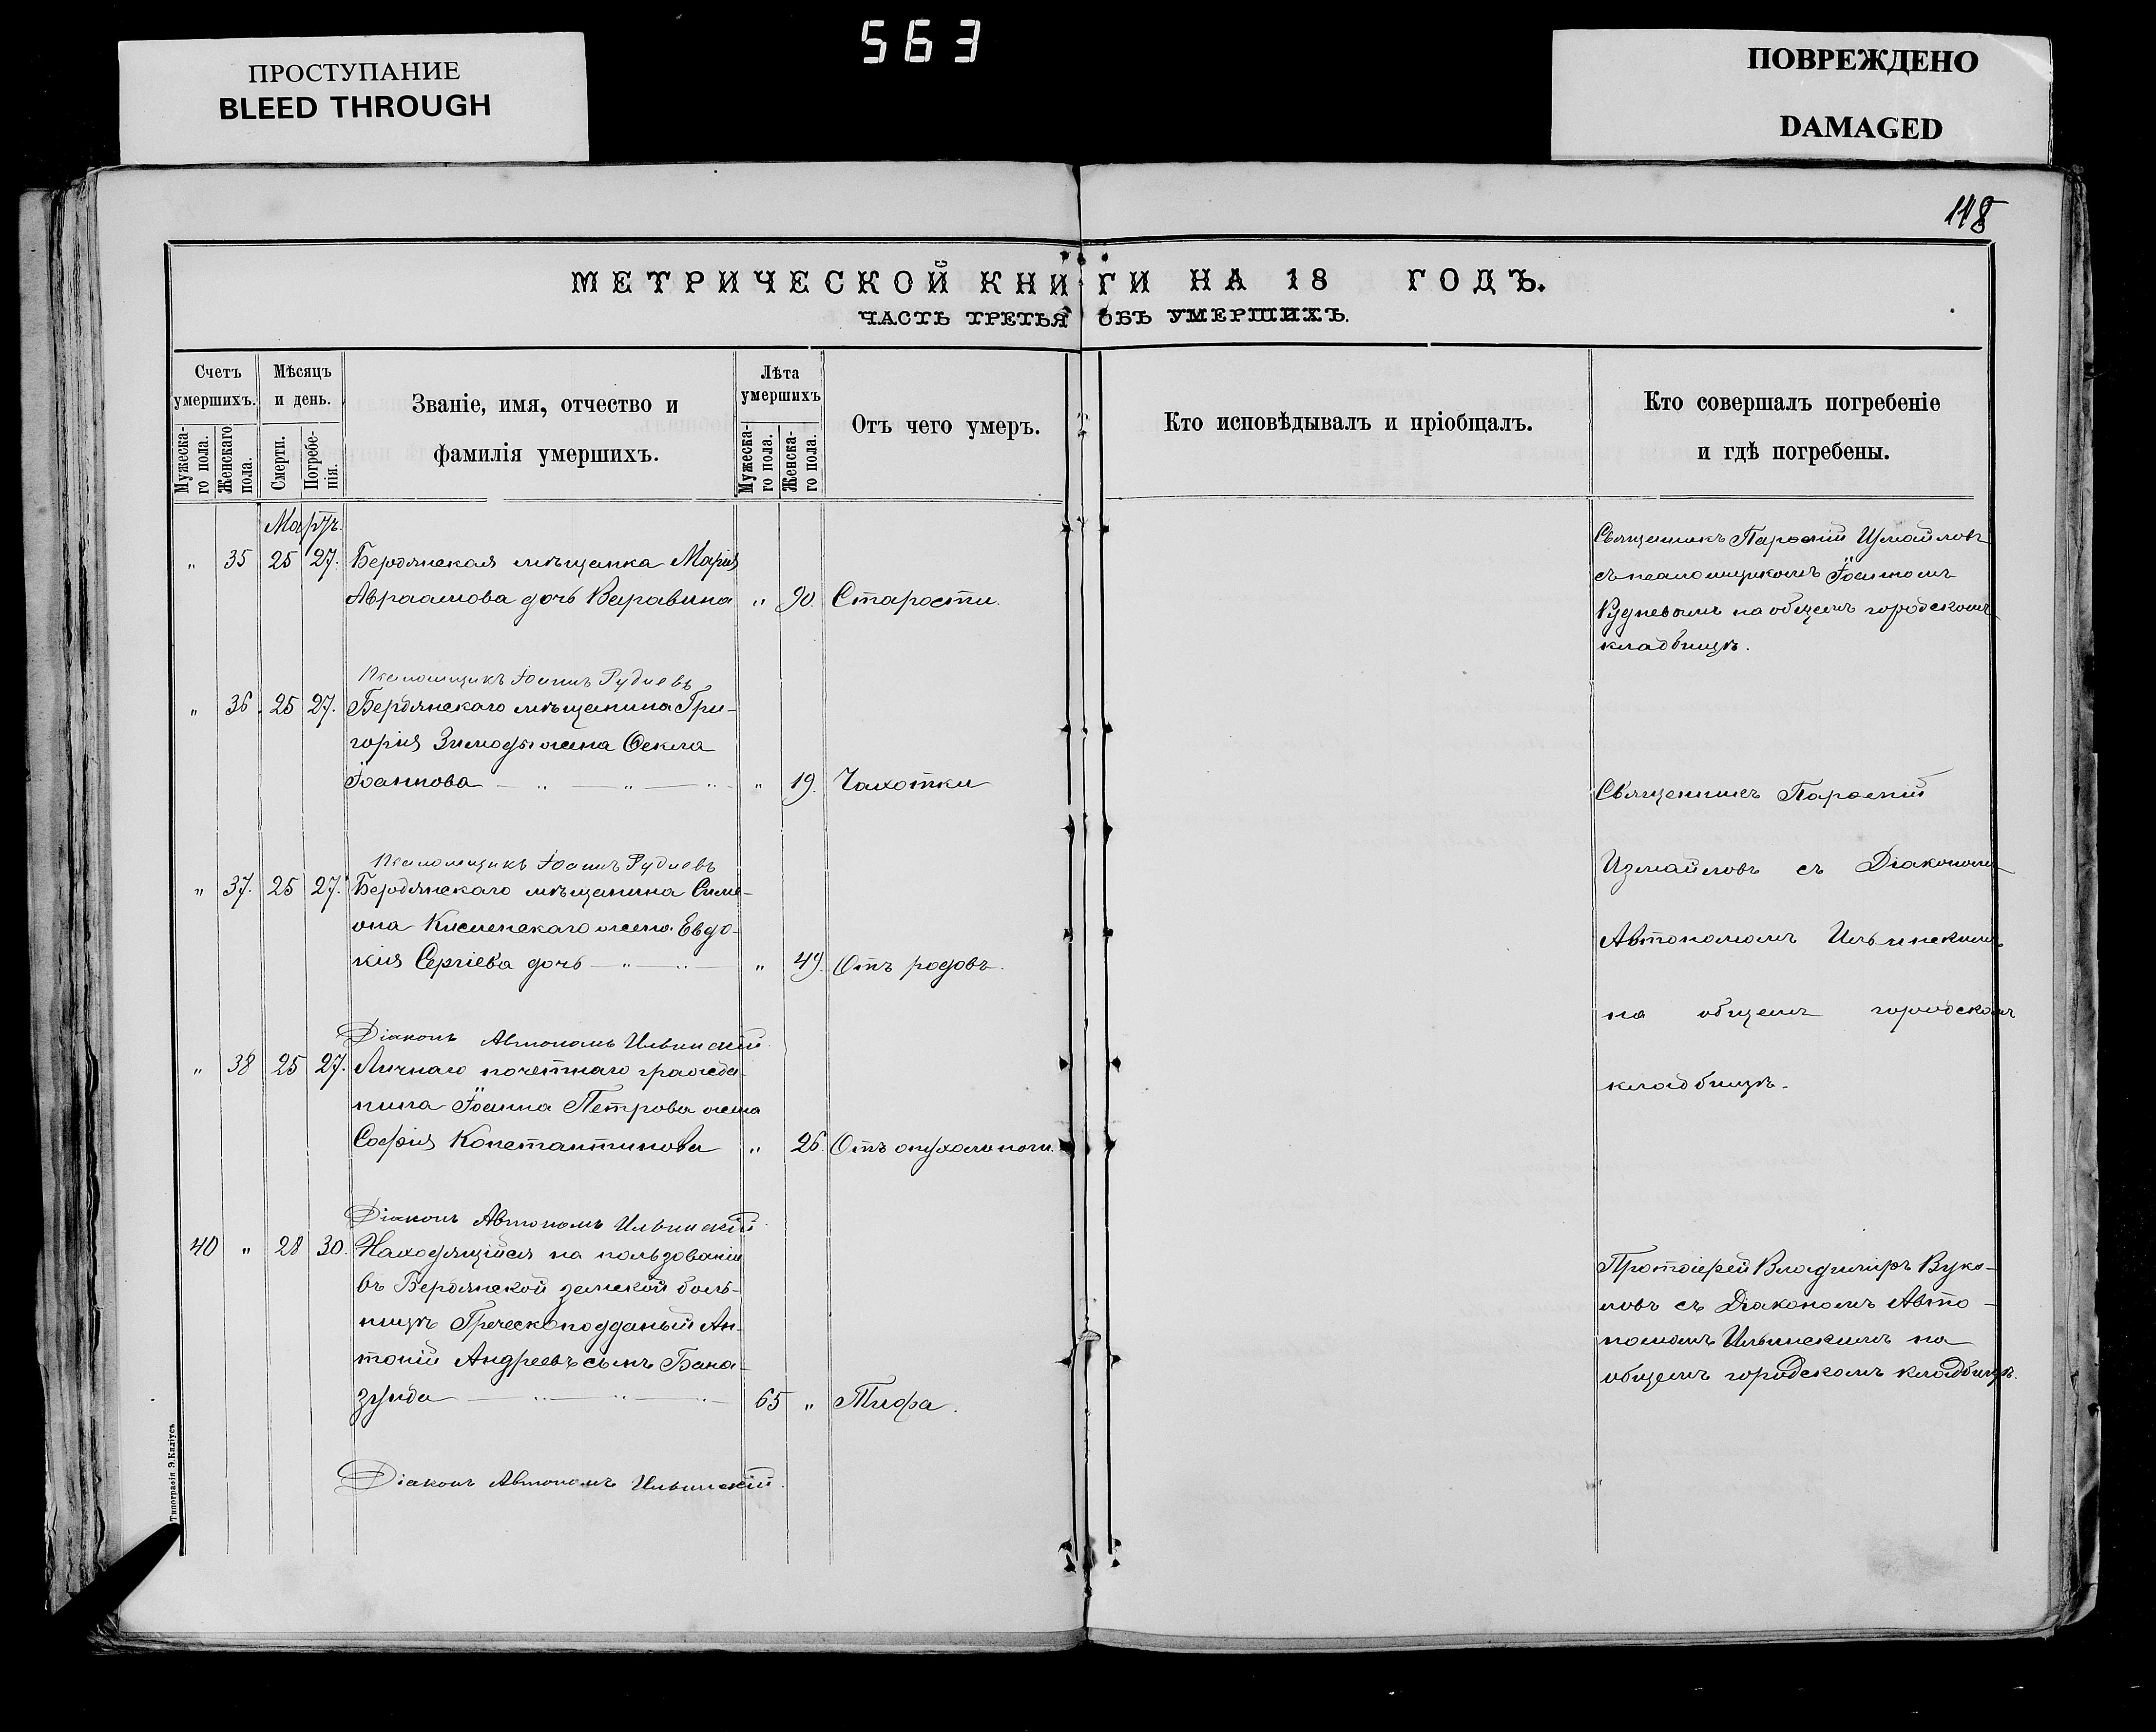 563
ПРОСТУПАНИЕ
BLEED THROUGH
ПОВРЕЖДЕНО
DAMAGED
118
МЕТРИЧЕСКОЙ КНИГИ НА 18 ГОДЪ.
ЧАСТЬ ТРЕТЬЯ ОБЪ УМЕРШИХЪ.
Счетъ умершихъ.
Мужеска-го пола.
Женскаго пола.
Мѣсяцъ и день.
Смерти.
Погребе-нія.
Званіе, имя, отчество и
фамилія умершихъ.
Лѣта умершихъ
Мужеска-го пола.
Женска-го пола.
Отъ чего умеръ.
Кто исповѣдывалъ и пріобщалъ.
Кто совершалъ погребеніе
и гдѣ погребены.
Мартъ.
" 35 25 27. Бердянская мѣщанка Марія
Авраамова дочь Варавина " 90. Старости.
Священникъ Парѳеній Измайловъ
съ псаломщикомъ Іоанномъ
Рудневымъ на общемъ городскомъ
кладбищѣ.
Псаломщикъ Іоаннъ Рудневъ
" 36. 25 27. Бердянскаго мѣщанина Гри-
горія жена Ѳекла
Іоаннова " 19. Чахотки
Псаломщикъ Іоаннъ Рудневъ
" 37. 25 27. Бердянскаго мѣщанина Симе-
она жена Евдо-
кія Сергіева дочь " 49. Отъ родовъ.
Діаконъ Автономъ Ильинскій
" 38 25 27. Личнаго почетнаго гражда-
нина Іоанна Петрова жена
Софія Константинова " 26. Отъ опухоли ноги.
Священникъ Парѳеній
Измайловъ съ Діакономъ
Автономомъ Ильинскимъ
на общемъ городскомъ
кладбищѣ.
Діаконъ Автономъ Ильинскій
40 " 28 30. Находящійся на пользованіи
въ Бердянской земской боль-
ницѣ Греческоподданый Ан-
тоній Андреевъ сынъ Бана-
зунда 65 " Тифа.
Протоіерей Владиміръ Вуко-
ловъ съ Діакономъ Авто-
номомъ Ильинскимъ на
общемъ городскомъ кладбищѣ.
Діаконъ Автономъ Ильинскій
Типографія Э.Килиусъ